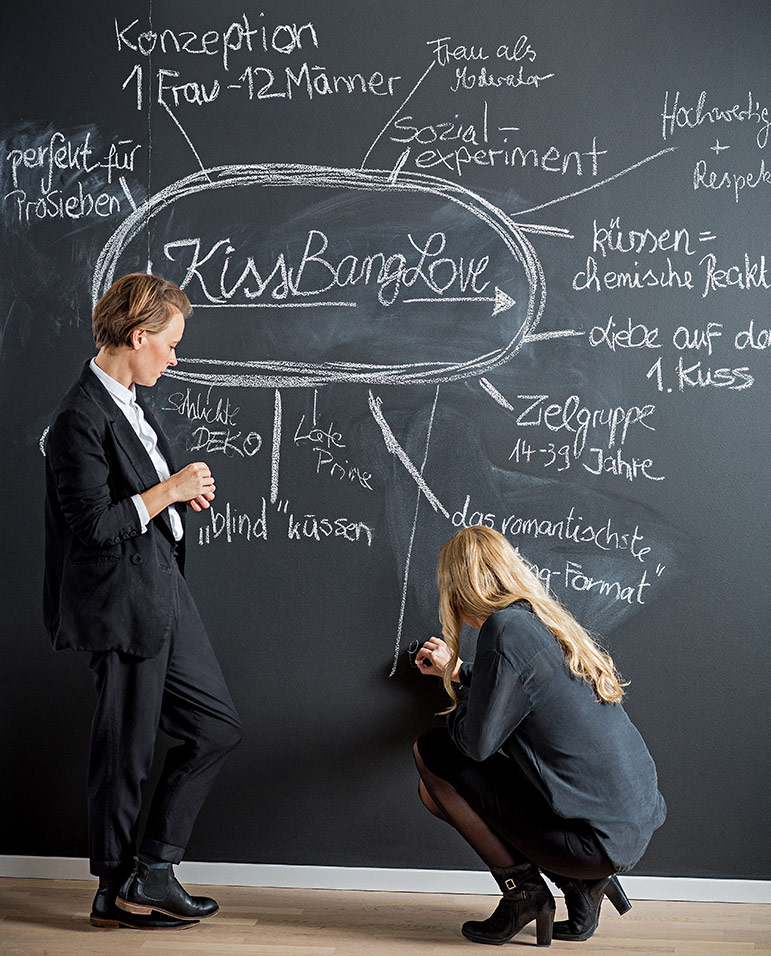 Konzeption
1 Frau - 12 Männer
Frau als
Moderator
Sozial-
experiment
Hochwertig
+
Respekt
perfekt für
ProSieben
KissBangLove
küssen =
chemische Reakt
Liebe auf den
1. Kuss
Zielgruppe
14-39 Jahre
schlichte
DEKO
Late
Prime
"blind" küssen
das romantischste
ng-Format"